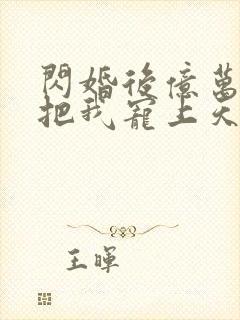 閃婚後億萬
把我寵上天
王暉